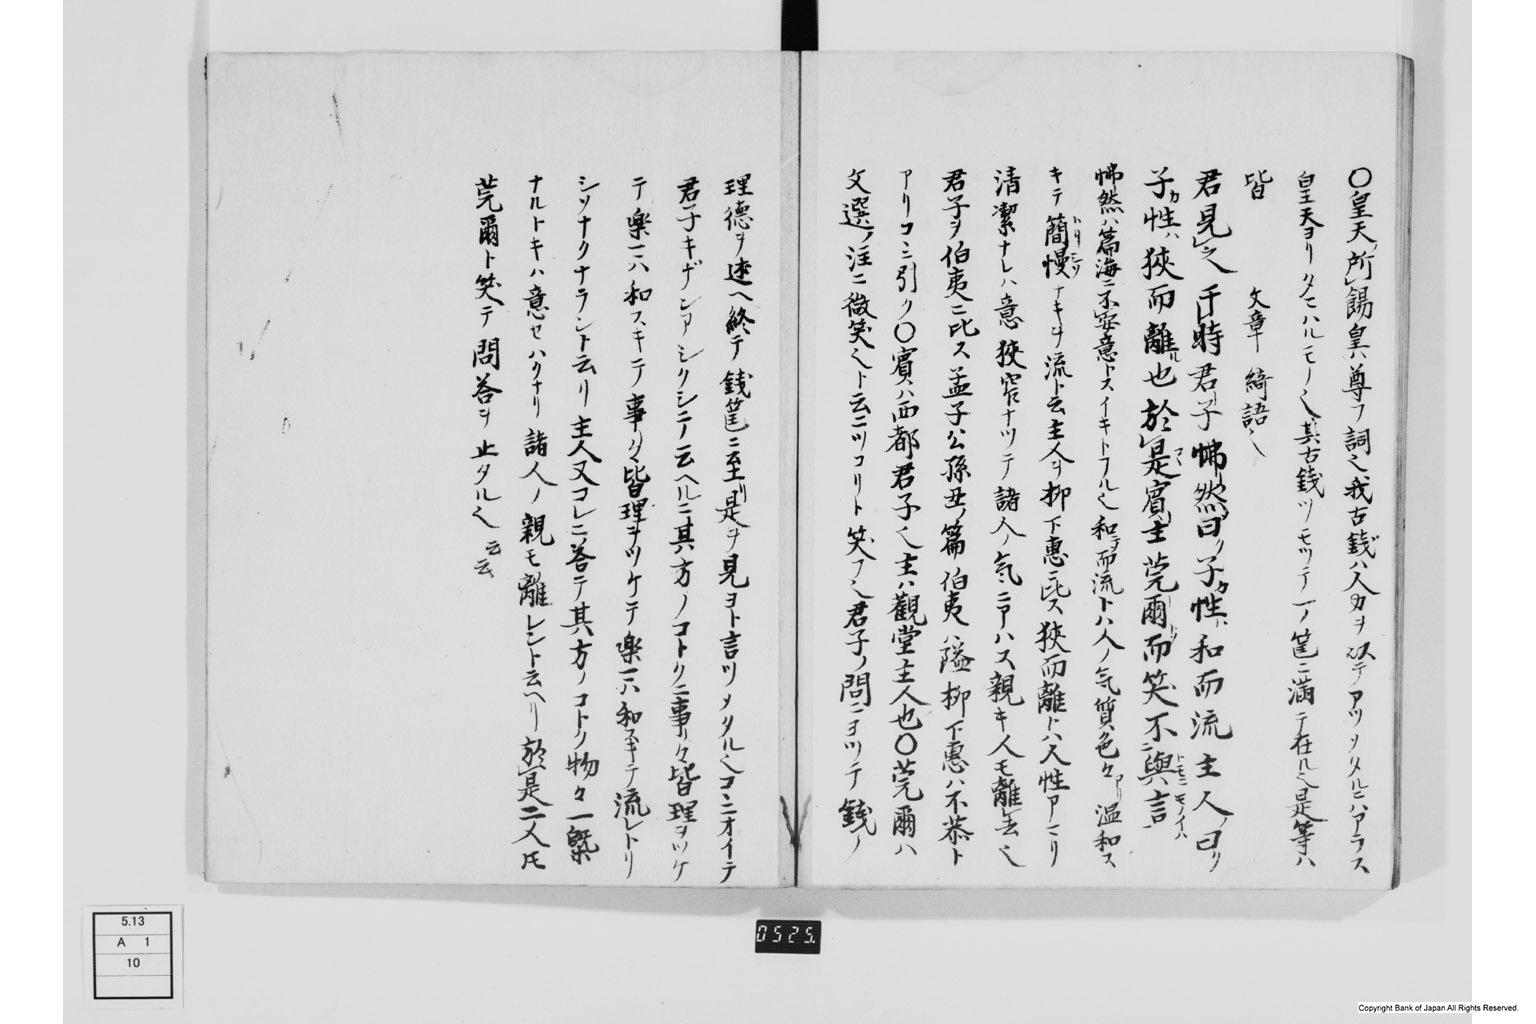 〇皇天ノ所錫皇ハ尊フ詞之我古銭ハ人力ヲ以テアツメタルニハアラス
皇天ヨリタマハルモノ之其古銭ツモツテ一ノ筐ニ満テ在ル之是等ハ
皆 文章ノ綺語之
君見之于時君子怫然曰ク子カ性ハ和而流主人曰ク
子カ性ハ狹而離ル也於是賓主莞爾而笑不與言
怫然ハ篇海ニ不安意トスイキトフル之和而流トハ人ノ気質色々アリ温和ス
キテ簡慢ナキヲ流ト云主人ヲ柳下惠ニ比ス狹而離トハ人性アマリ
清潔ナレハ意狹窄ナツテ諸人ノ気ニアハス親キ人モ離去之
君子ヲ伯夷ニ比ス孟子公孫丑ノ篇伯夷ハ隘柳下惠ハ不恭ト
アリコヽニ引ク〇賓ハ西都君子之主ハ觀堂主人也〇莞爾ハ
文選ノ注ニ微笑之ト云ニツコリト笑フ之君子ノ問ニヨツテ銭ノ
理德ヲ述ヘ終テ銭筐ニ至リ是ヲ見ヨト言ツメタル之コヽニオイテ
君子キゲンアシクシテ云ヘルニ其方ノコトク事々皆理ヲツケ
テ樂ハ和スキテ事々皆理ヲツケテ樂ハ和スキテ流レトリ
シツナクナラント云リ主人又コレニ答テ其方ノコトク物々一槩
ナルトキハ意セハクナリ諸人ノ親モ離レント云ヘリ於是二人氏
莞爾ト笑テ問答ヲ止タル之云云
5.13
A 1
10
0525.
Copyright Bank of Japan All Rights Reserved.